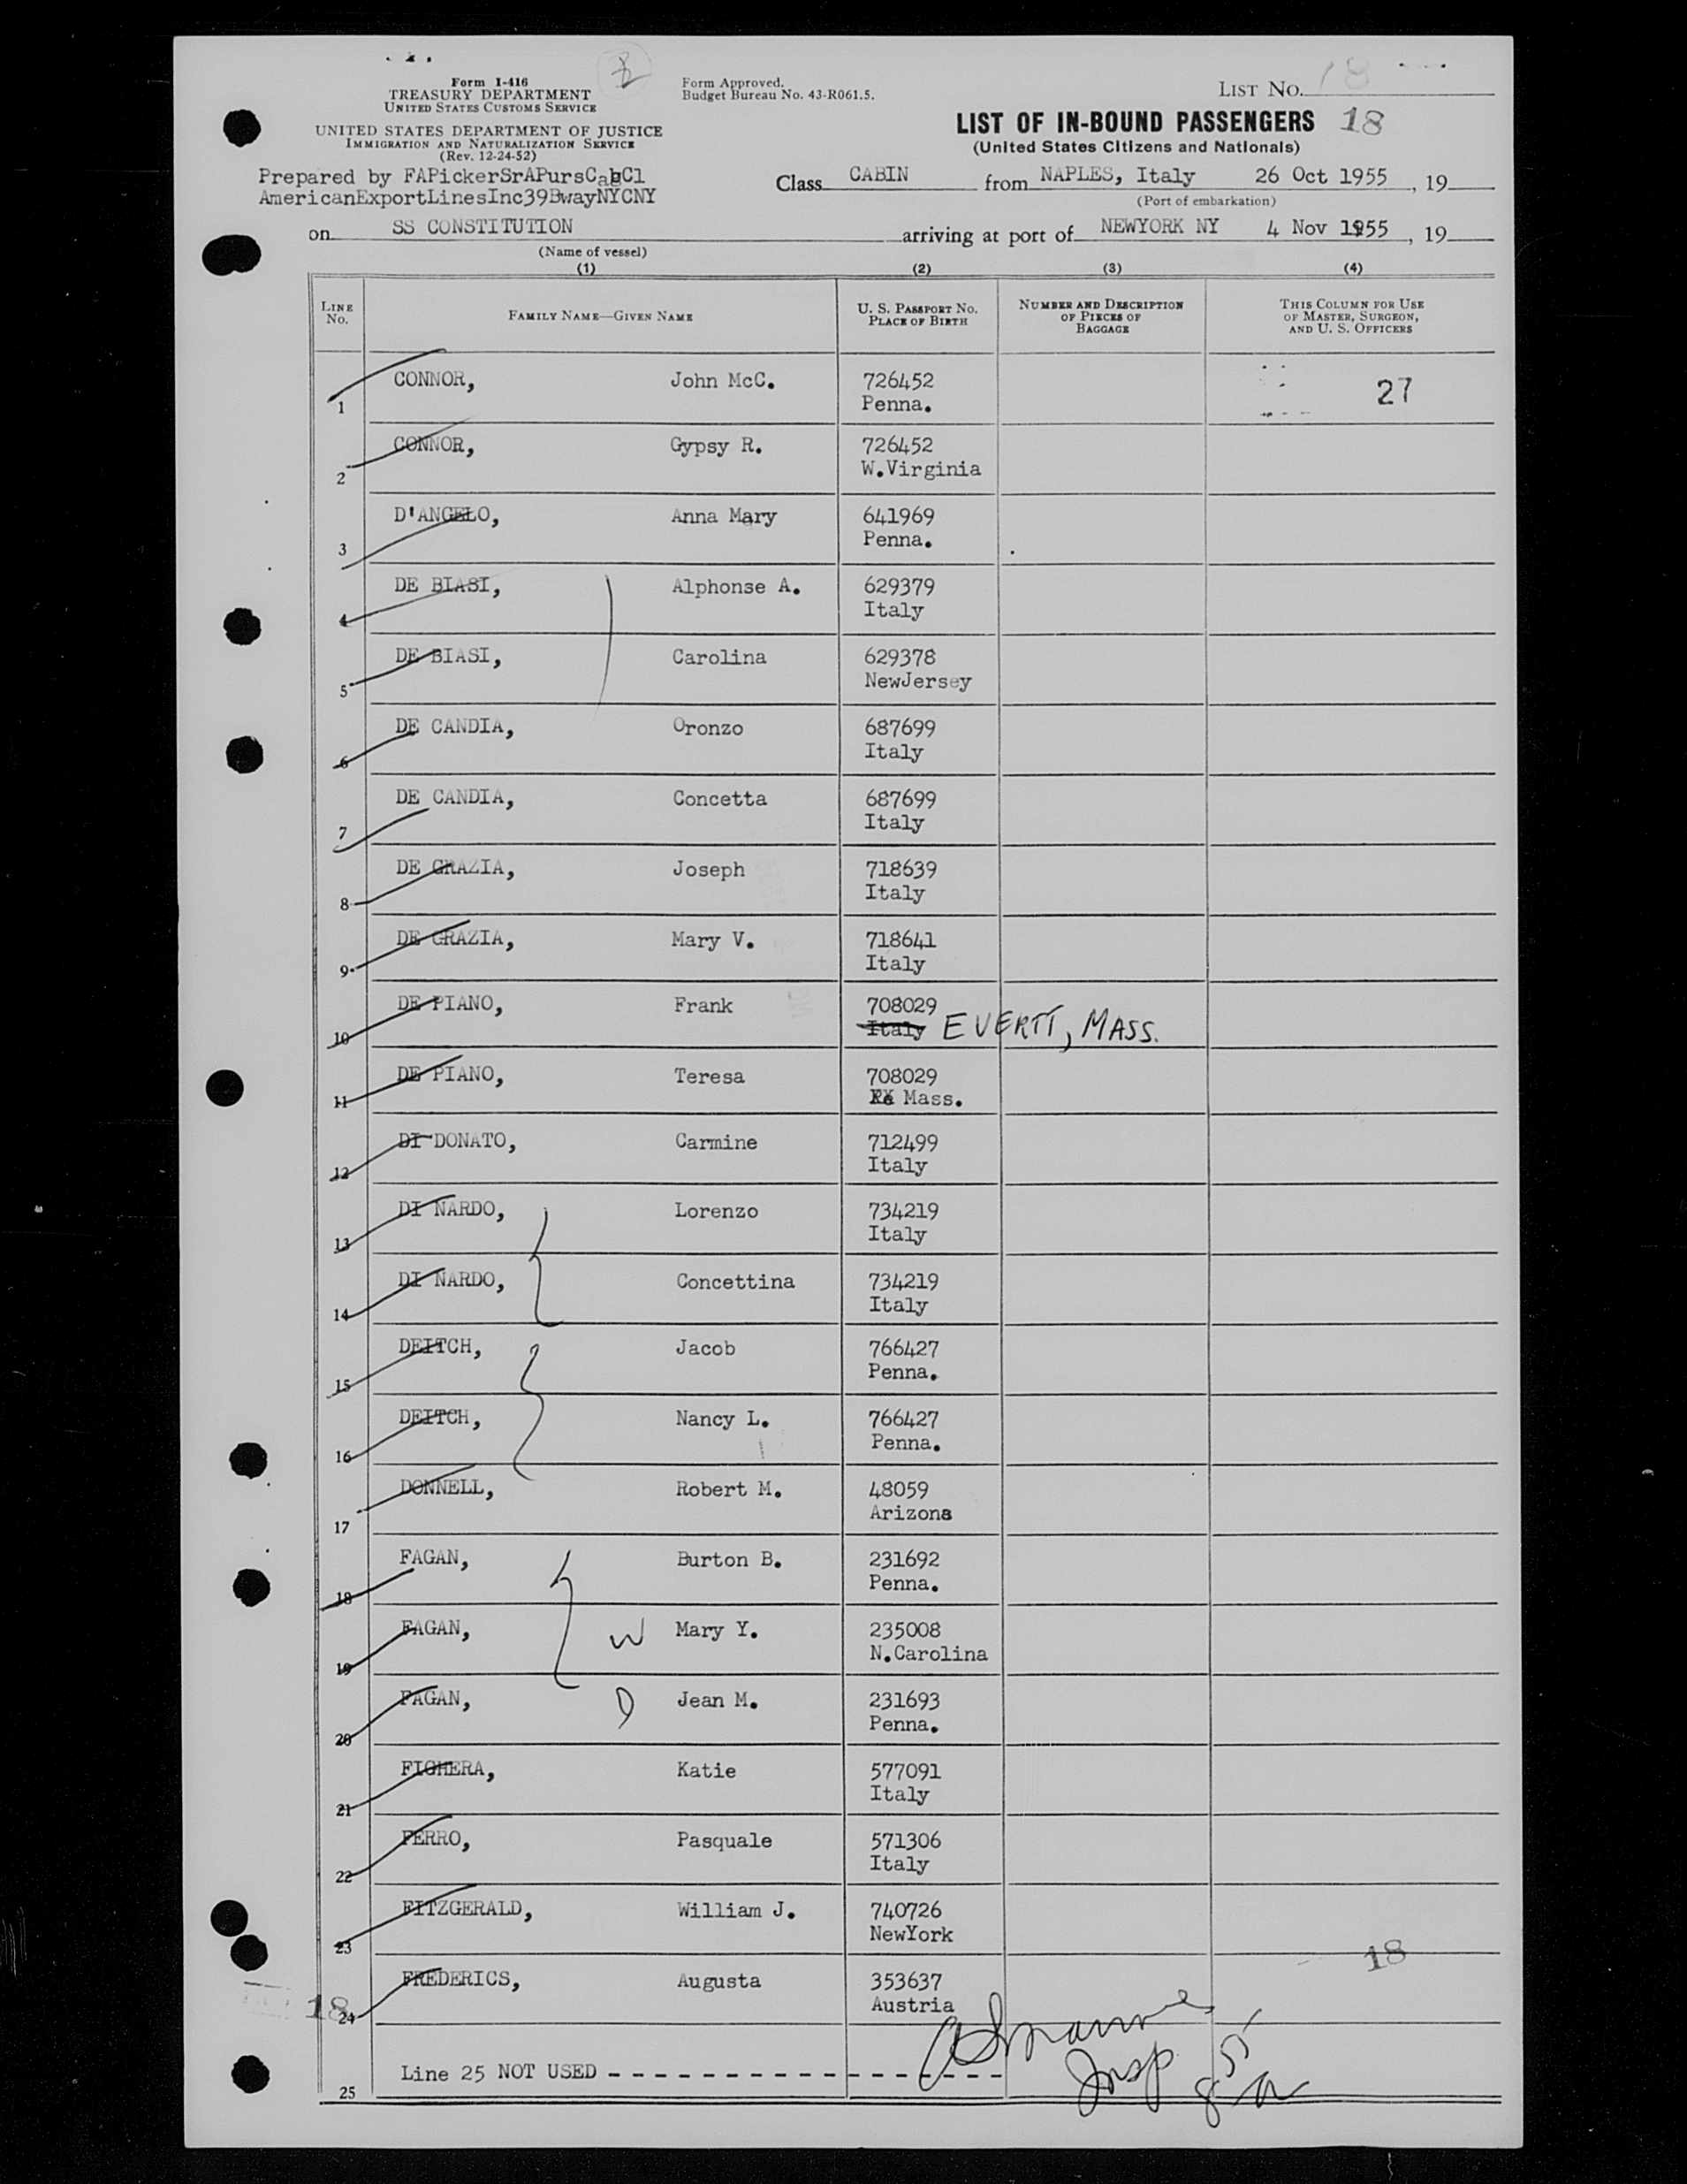 Form I-416
TREASURY DEPARTMENT
UNITED STATES CUSTOMS SERVICE
UNITED STATES DEPARTMENT OF JUSTICE
IMMIGRATION AND NATURALIZATION SERVICE
(Rev. 12-24-52)
Form Approved.
Budget Bureau No. 43-R061.5.
LIST No. 18
LIST OF IN-BOUND PASSENGERS 18
(United States Citizens and Nationals)
Prepared by FAPickerSrAPursCabCl
AmericanExportLinesInc39BwayNYCNY
Class CABIN from NAPLES, Italy 26 Oct 1955, 19
(Port of embarkation)
on SS CONSTITUTION arriving at port of NEWYORK NY 4 Nov 1955, 19
(Name of vessel)
(1) (2) (3) (4)
LINE No. FAMILY NAME—GIVEN NAME U. S. PASSPORT No. PLACE OF BIRTH NUMBER AND DESCRIPTION OF PIECES OF BAGGAGE THIS COLUMN FOR USE OF MASTER, SURGEON, AND U. S. OFFICERS
1 CONNOR, John McC. 726452 27
Penna.
2 CONNOR, Gypsy R. 726452
W.Virginia
3 D'ANGELO, Anna Mary 641969
Penna.
4 DE BIASI, Alphonse A. 629379
Italy
5 DE BIASI, Carolina 629378
NewJersey
6 DE CANDIA, Oronzo 687699
Italy
7 DE CANDIA, Concetta 687699
Italy
8 DE GRAZIA, Joseph 718639
Italy
9 DE GRAZIA, Mary V. 718641
Italy
10 DE PIANO, Frank 708029
Italy EVERTT, MASS.
11 DE PIANO, Teresa 708029
Mass.
12 DI DONATO, Carmine 712499
Italy
13 DI NARDO, Lorenzo 734219
Italy
14 DI NARDO, Concettina 734219
Italy
15 DEITCH, Jacob 766427
Penna.
16 DEITCH, Nancy L. 766427
Penna.
17 DONNELL, Robert M. 48059
Arizona
18 FAGAN, Burton B. 231692
Penna.
19 FAGAN, W Mary Y. 235008
N.Carolina
20 FAGAN, D Jean M. 231693
Penna.
21 FIGHERA, Katie 577091
Italy
22 FERRO, Pasquale 571306
Italy
23 FITZGERALD, William J. 740726
NewYork
18
24 FREDERICS, Augusta 353637
Austria
18
Insp
25 Line 25 NOT USED - - - - - - - - - - - - - - - - -